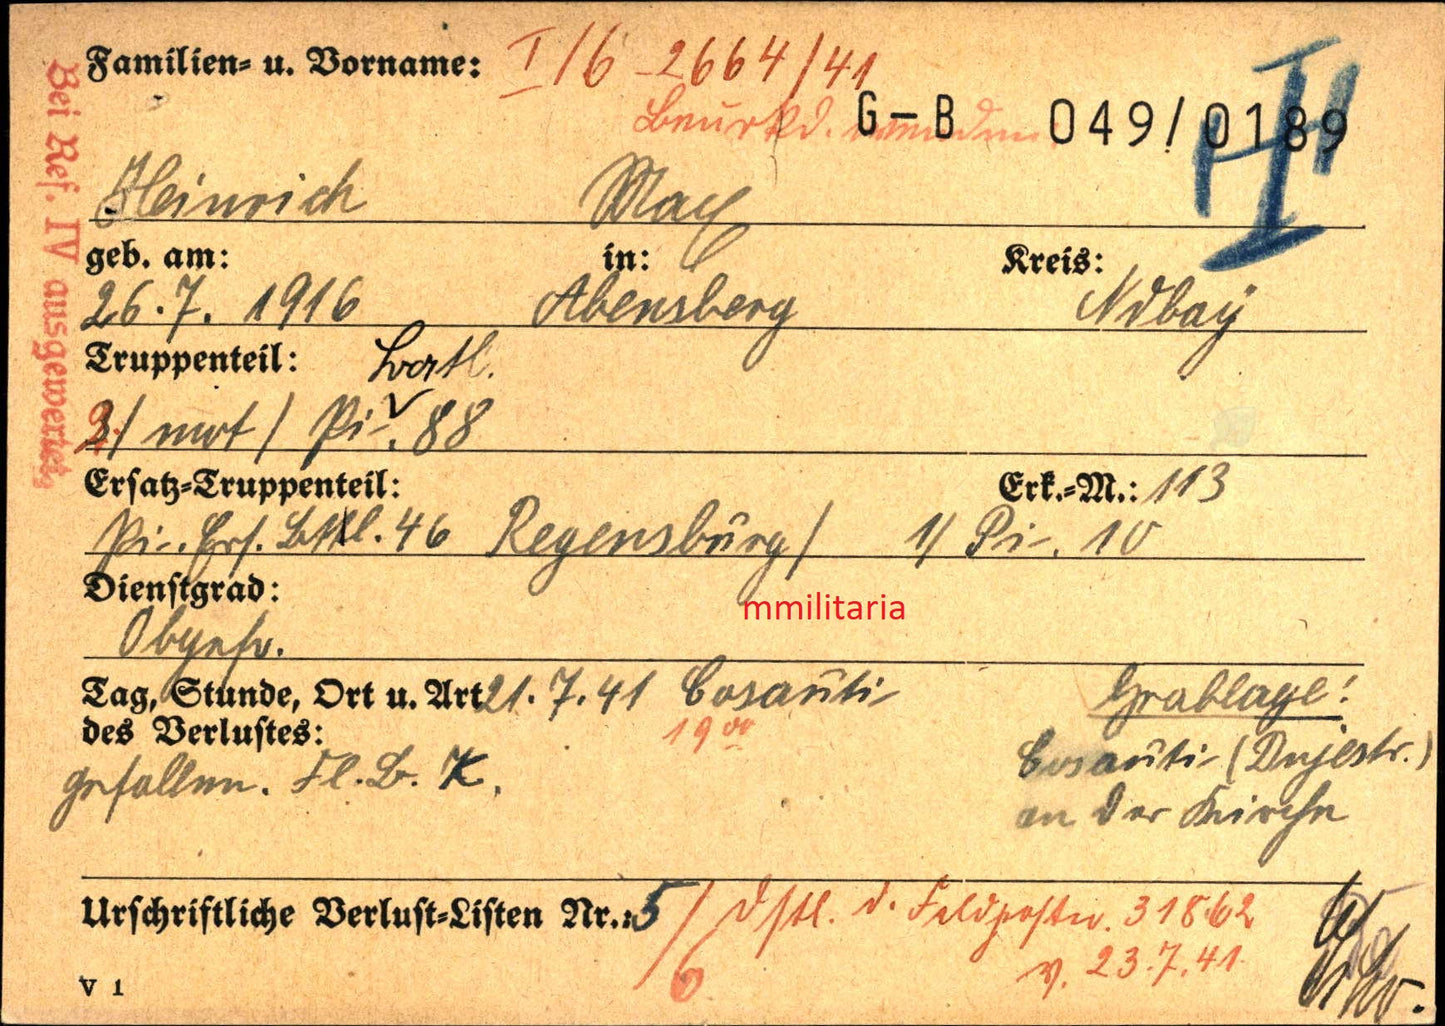 Familien- u. Vorname: I/6 2664/41
Beurkd.
G-B 049/0189
Heinrich Max
geb. am: in: Kreis:
26.7. 1916 Abensberg Ndbay
Truppenteil:
3/ mot / Pi. 88
Ersatz-Truppenteil: Erk.-M.: 113
Pi. Ers. Btl. 46 Regensburg / 1/ Pi. 10
Dienstgrad:
mmilitaria
Obgefr.
Tag, Stunde, Ort u. Art 21.7.41 Cosauti Grablage:
des Verlustes: 19⁰⁰
Cosauti (Dnjestr.)
gefallen. Fl. B. K.
an der Kirche
Urschriftliche Verlust-Listen Nr.: 5/6 Dstl. d. Feldpostnr. 31862
v. 23.7.41
V 1
Bei Ref. IV ausgewertet